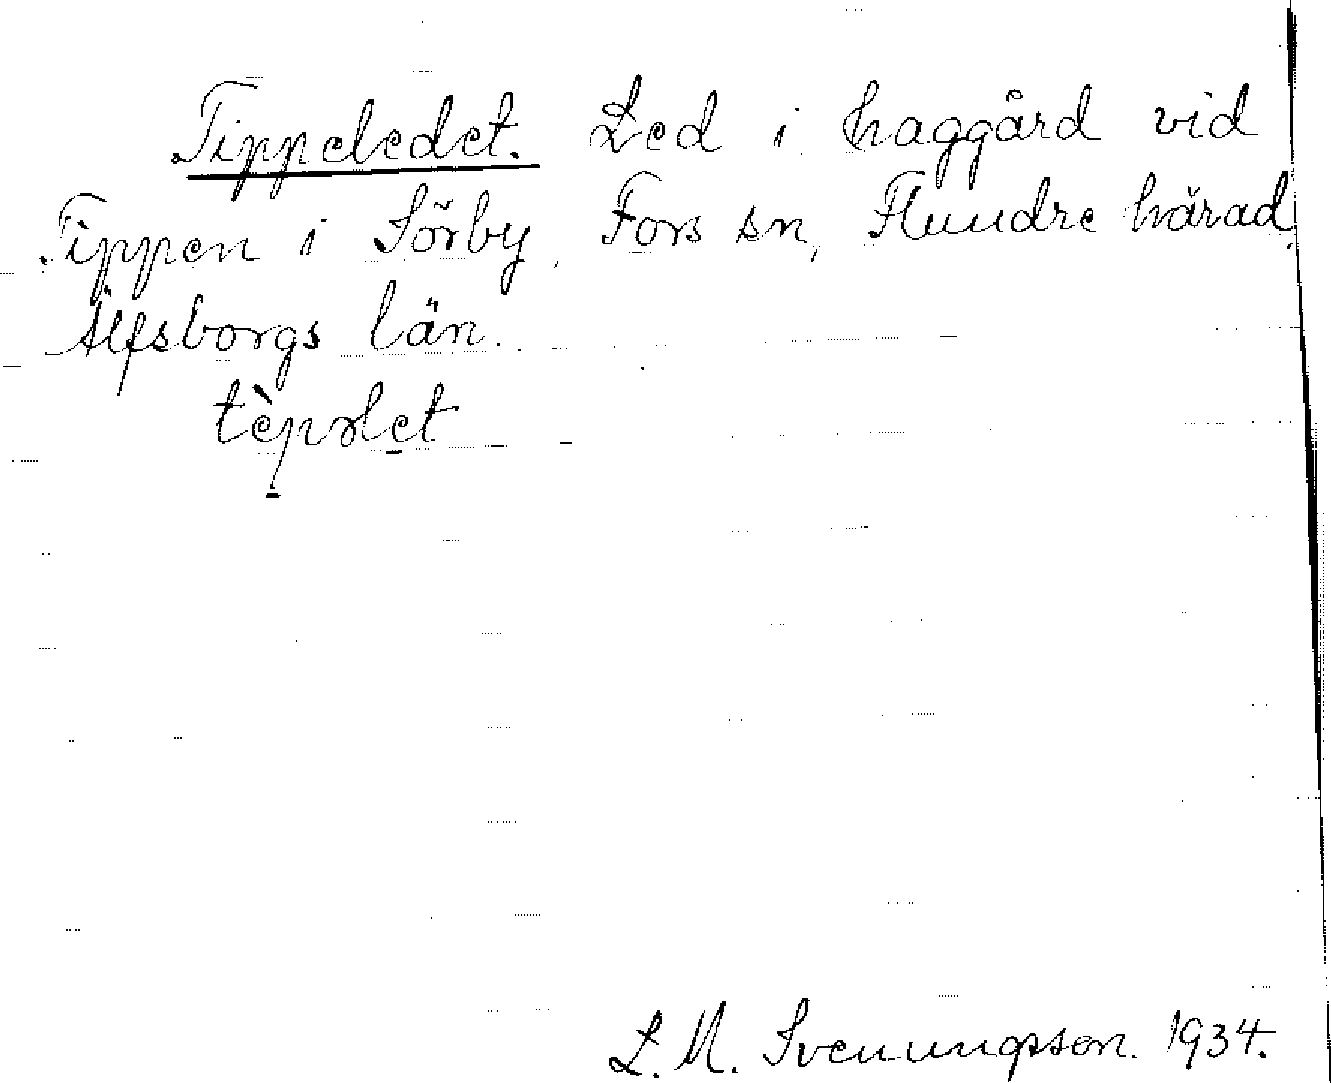 Tippeledet. Led i haggård vid
Tippen i Sörby, Fors sn, Flundre härad,
Älfsborgs län.
tèpəlet
L. M. Svenungsson. 1934.